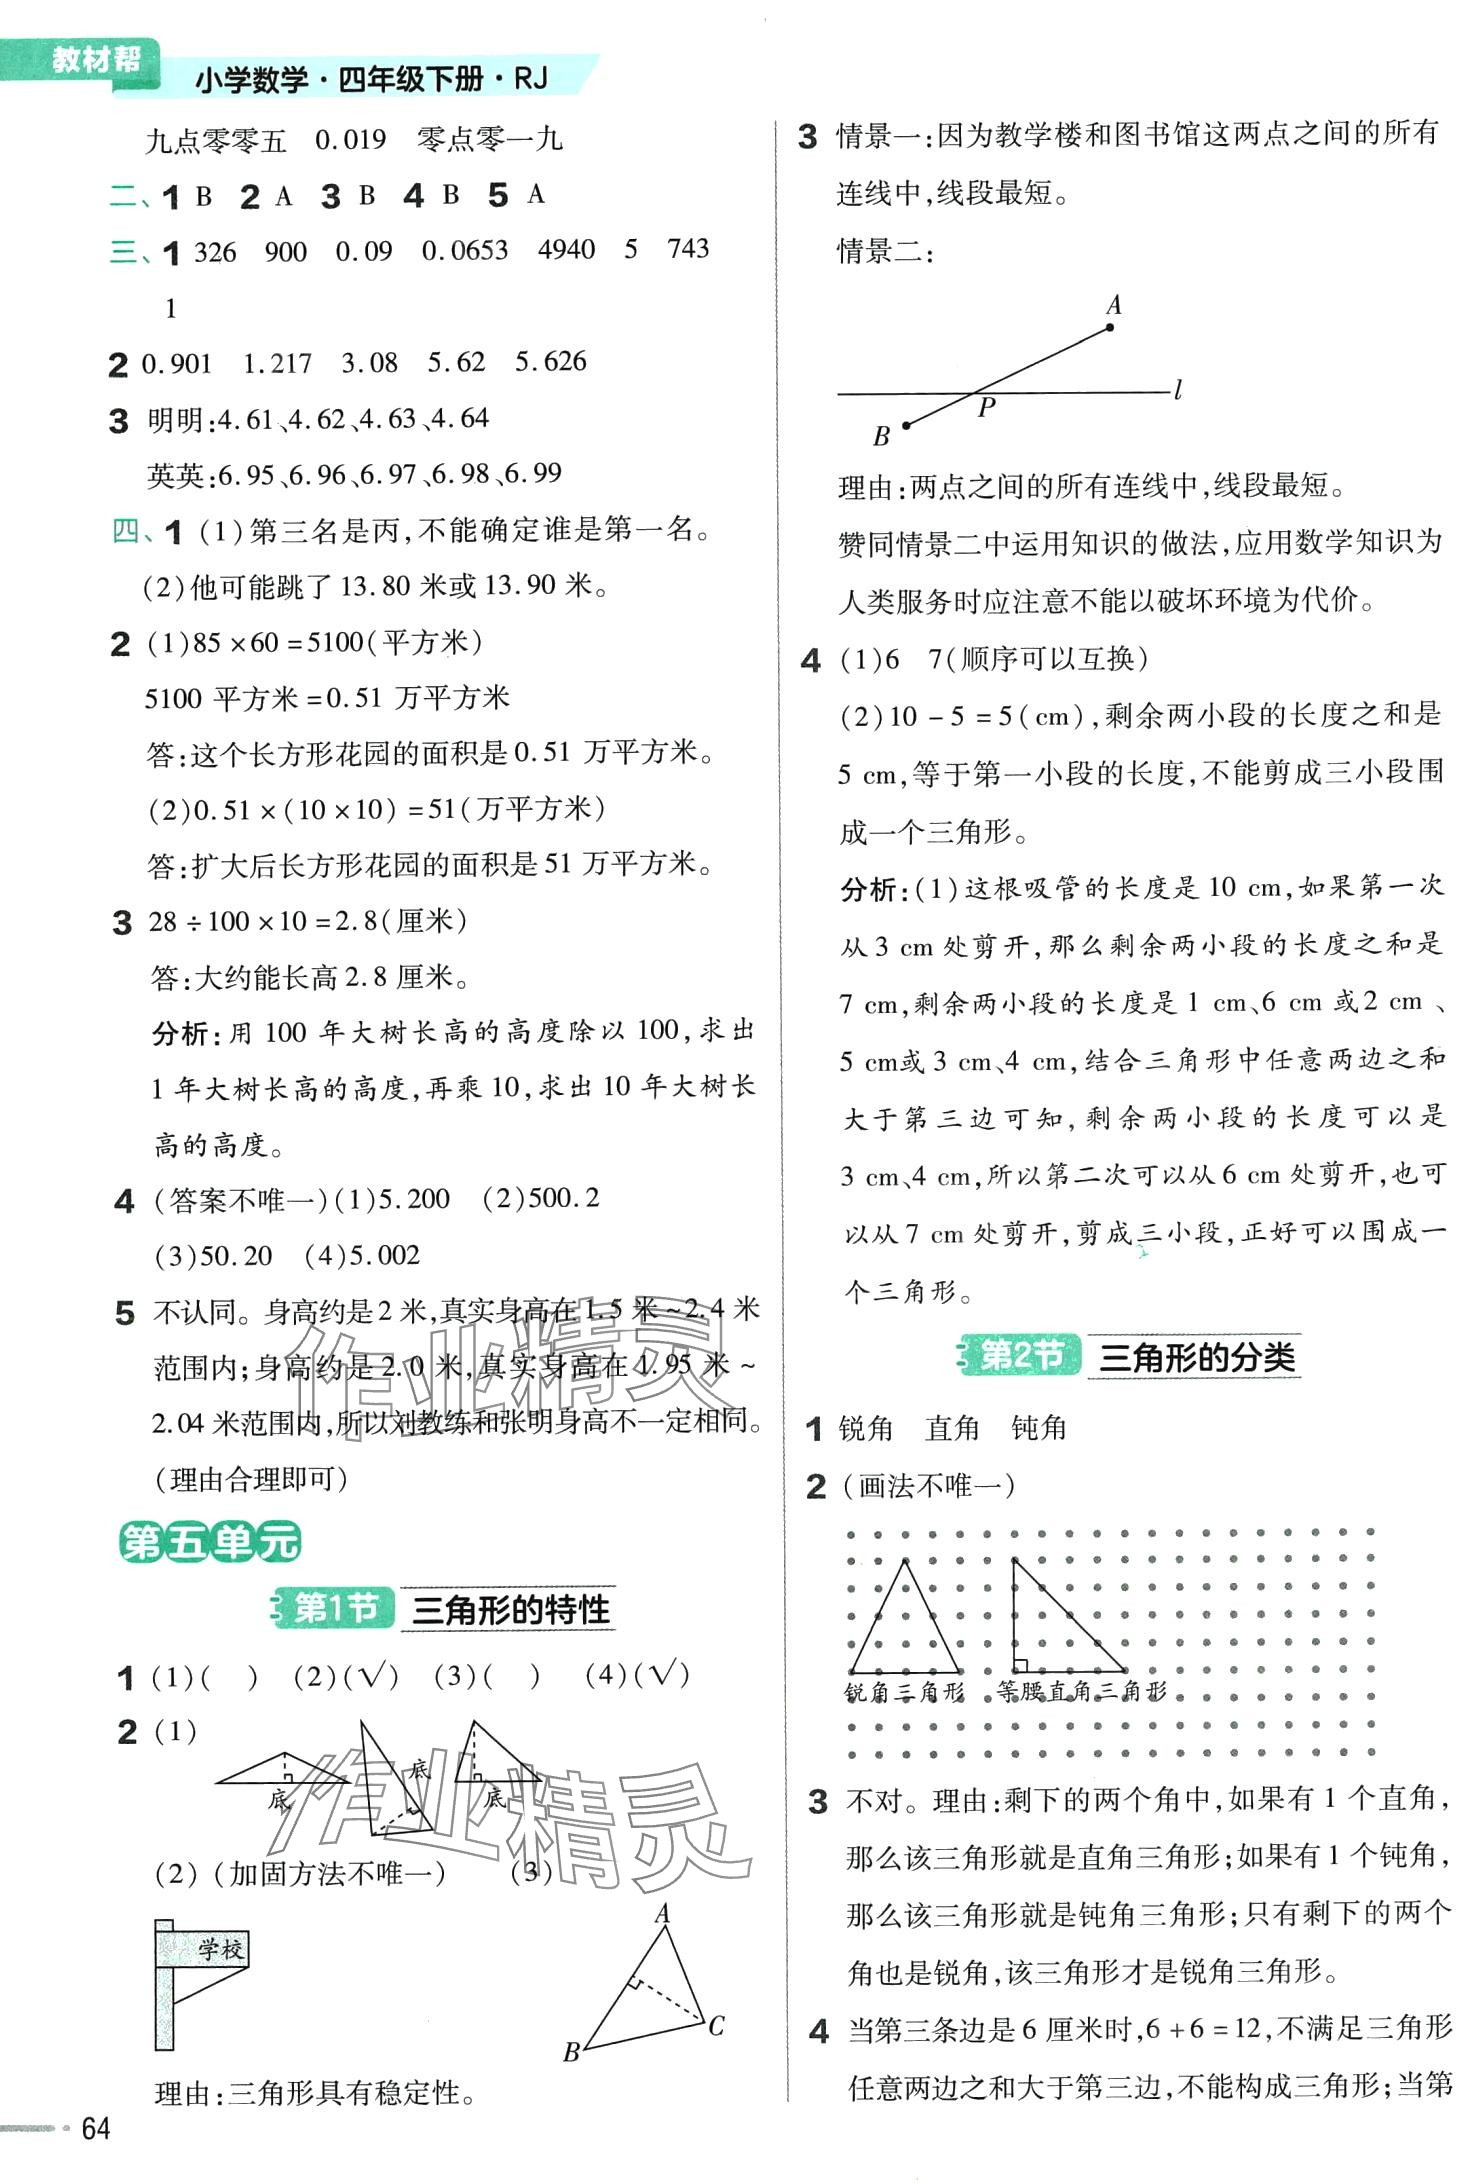 教材帮
小学数学·四年级下册·RJ
九点零零五 0.019 零点零一九
二、1 B 2 A 3 B 4 B 5 A
三、1 326 900 0.09 0.0653 4940 5 743
1
2 0.901 1.217 3.08 5.62 5.626
3 明明:4.61、4.62、4.63、4.64
英英:6.95、6.96、6.97、6.98、6.99
四、1 (1)第三名是丙,不能确定谁是第一名。
(2)他可能跳了13.80米或13.90米。
2 (1)85×60=5100(平方米)
5100平方米=0.51万平方米
答:这个长方形花园的面积是0.51万平方米。
(2)0.51×(10×10)=51(万平方米)
答:扩大后长方形花园的面积是51万平方米。
3 28÷100×10=2.8(厘米)
答:大约能长高2.8厘米。
分析:用100年大树长高的高度除以100,求出
1年大树长高的高度,再乘10,求出10年大树长
高的高度。
4 (答案不唯一)(1)5.200 (2)500.2
(3)50.20 (4)5.002
5 不认同。身高约是2米,真实身高在1.5米~2.4米
范围内;身高约是2.0米,真实身高在1.95米~
2.04米范围内,所以刘教练和张明身高不一定相同。
(理由合理即可)
第五单元
第1节 三角形的特性
1 (1)( ) (2)(√) (3)( ) (4)(√)
2 (1)
底 底 底
(2)(加固方法不唯一) (3)
学校
A
B
C
理由:三角形具有稳定性。
64
3 情景一:因为教学楼和图书馆这两点之间的所有
连线中,线段最短。
情景二:
A
l
P
B
理由:两点之间的所有连线中,线段最短。
赞同情景二中运用知识的做法,应用数学知识为
人类服务时应注意不能以破坏环境为代价。
4 (1)6 7(顺序可以互换)
(2)10-5=5(cm),剩余两小段的长度之和是
5 cm,等于第一小段的长度,不能剪成三小段围
成一个三角形。
分析:(1)这根吸管的长度是10 cm,如果第一次
从3 cm处剪开,那么剩余两小段的长度之和是
7 cm,剩余两小段的长度是1 cm、6 cm或2 cm、
5 cm或3 cm、4 cm,结合三角形中任意两边之和
大于第三边可知,剩余两小段的长度可以是
3 cm、4 cm,所以第二次可以从6 cm处剪开,也可
以从7 cm处剪开,剪成三小段,正好可以围成一
个三角形。
第2节 三角形的分类
1 锐角 直角 钝角
2 (画法不唯一)
锐角三角形 等腰直角三角形
3 不对。理由:剩下的两个角中,如果有1个直角,
那么该三角形就是直角三角形;如果有1个钝角,
那么该三角形就是钝角三角形;只有剩下的两个
角也是锐角,该三角形才是锐角三角形。
4 当第三条边是6厘米时,6+6=12,不满足三角形
任意两边之和大于第三边,不能构成三角形;当第
作业精灵
作业精灵